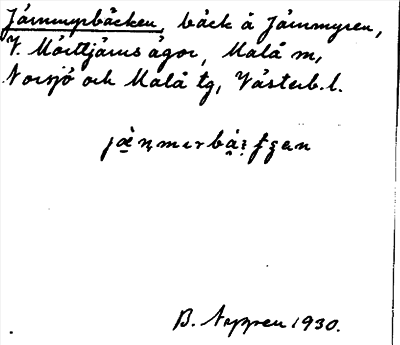 Järnmyrbäcken, bäck å Järnmyren,
V. Mörttjärns ägor, Malå sn,
Norsjö och Malå tg, Västerb. l.
B. Noppen 1930.